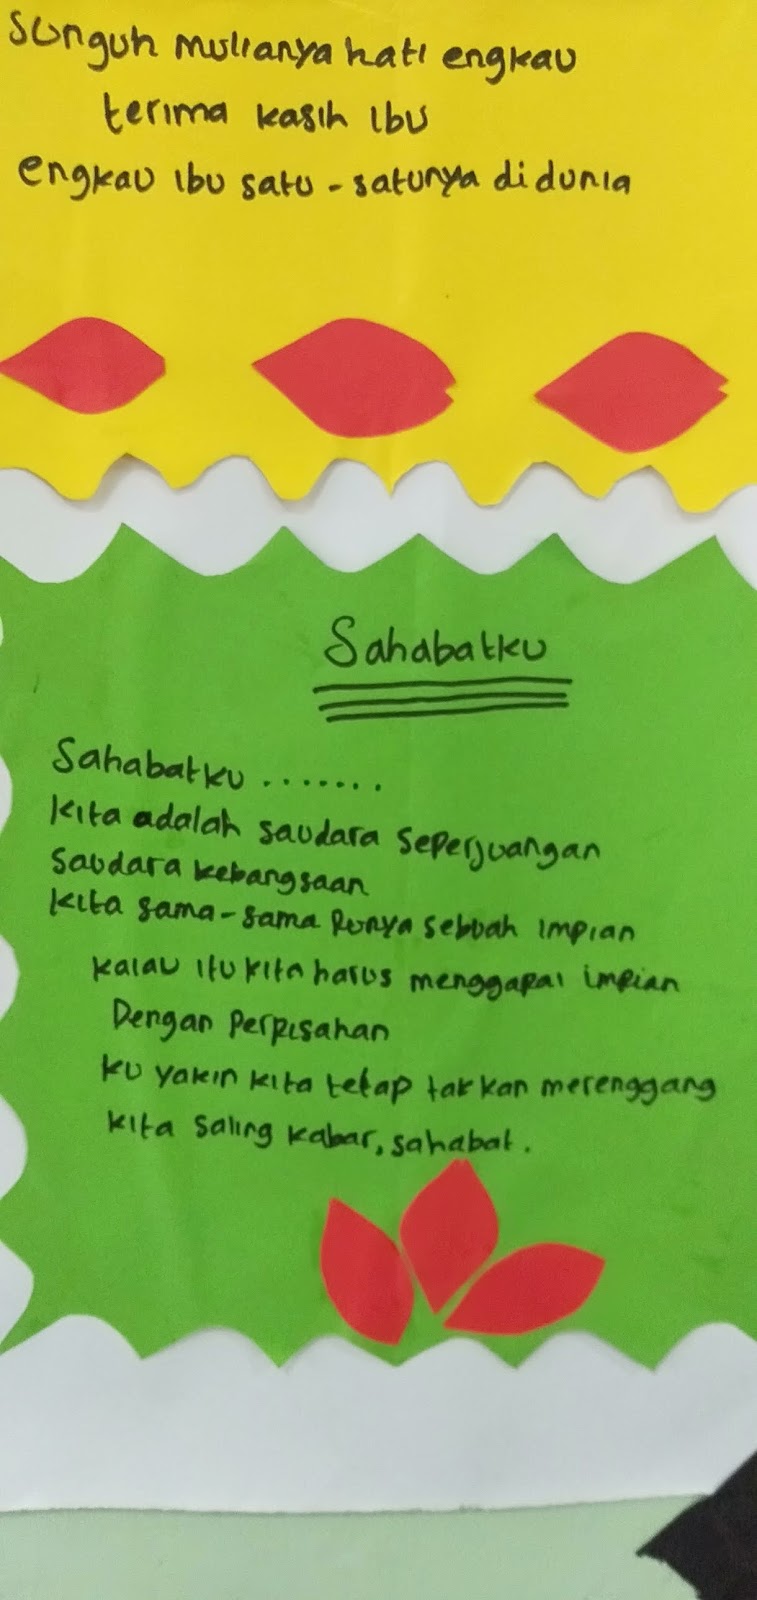 Sunguh mulianya hati engkau
terima kasih ibu
engkau ibu satu - satunya di dunia
Sahabatku
Sahabatku .......
Kita adalah saudara seperjuangan
Saudara kebangsaan
Kita sama - sama punya sebuah impian
kalau itu kita harus menggapai impian
Dengan perpisahan
ku yakin kita tetap takkan merenggang
kita saling kabar, sahabat.